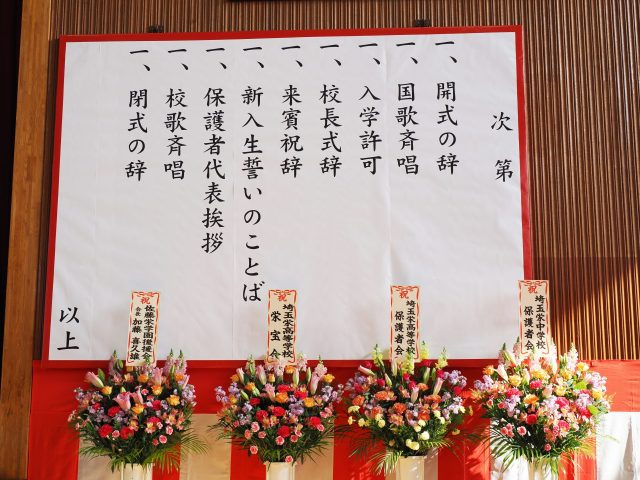 次第
一、開式の辞
一、国歌斉唱
一、入学許可
一、校長式辞
一、来賓祝辞
一、新入生誓いのことば
一、保護者代表挨拶
一、校歌斉唱
一、閉式の辞
以上
祝
埼玉栄中学校
保護者会
祝
埼玉栄高等学校
保護者会
祝
埼玉栄高等学校
栄宝会
祝
佐藤栄学園後援会
会長 加藤喜久雄